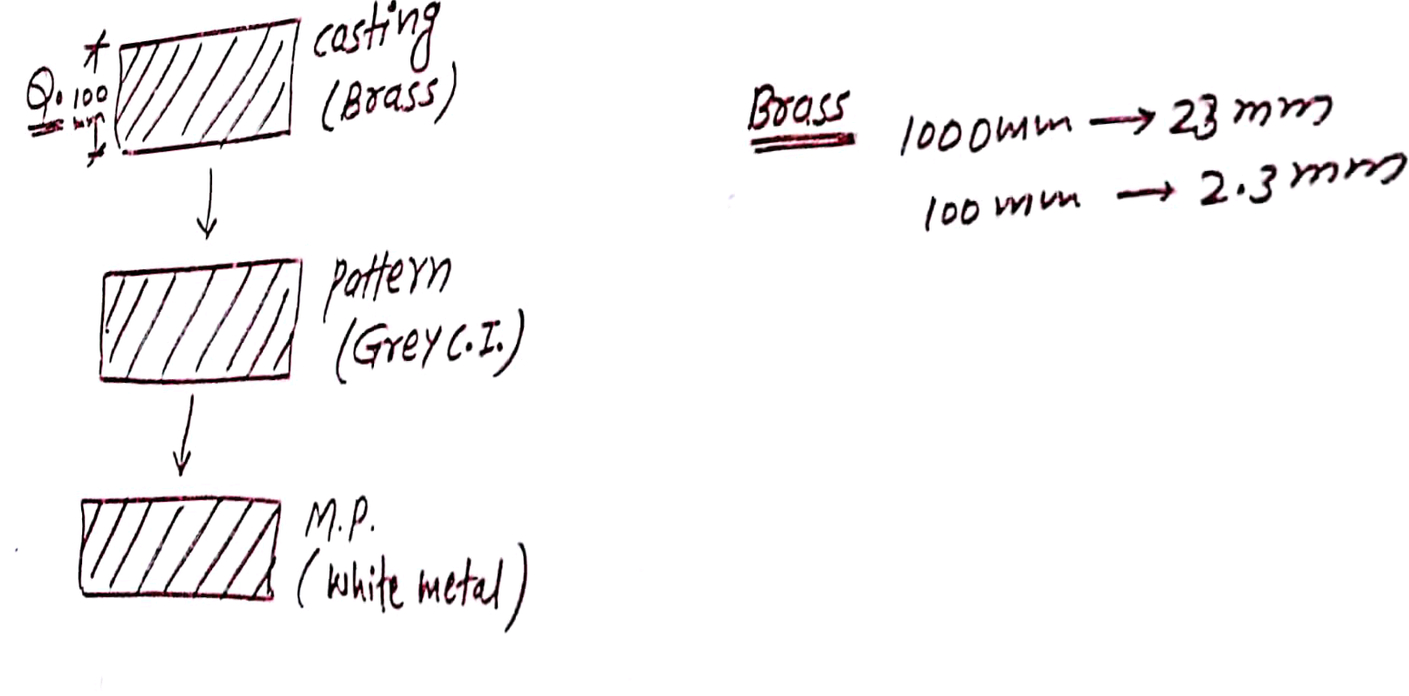 Q. 100 mm
casting
(Brass)
pattern
(Grey C.I.)
M.P.
(White metal)
Brass
1000mm → 23 mm
100 mm → 2.3 mm